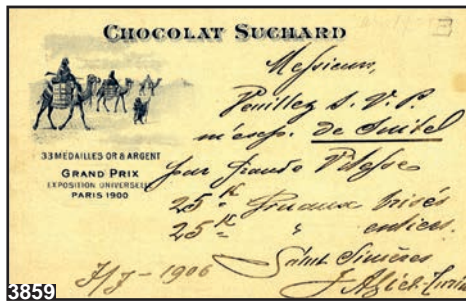 CHOCOLAT SUCHARD
33 MÉDAILLES OR & ARGENT
GRAND PRIX
EXPOSITION UNIVERSELLE
PARIS 1900
Messieurs,
Veuillez S. V. P.
m'exp. de suite
par grande Vitesse
25 K Gruaux brisés
25 K " entiers.
1906
3859